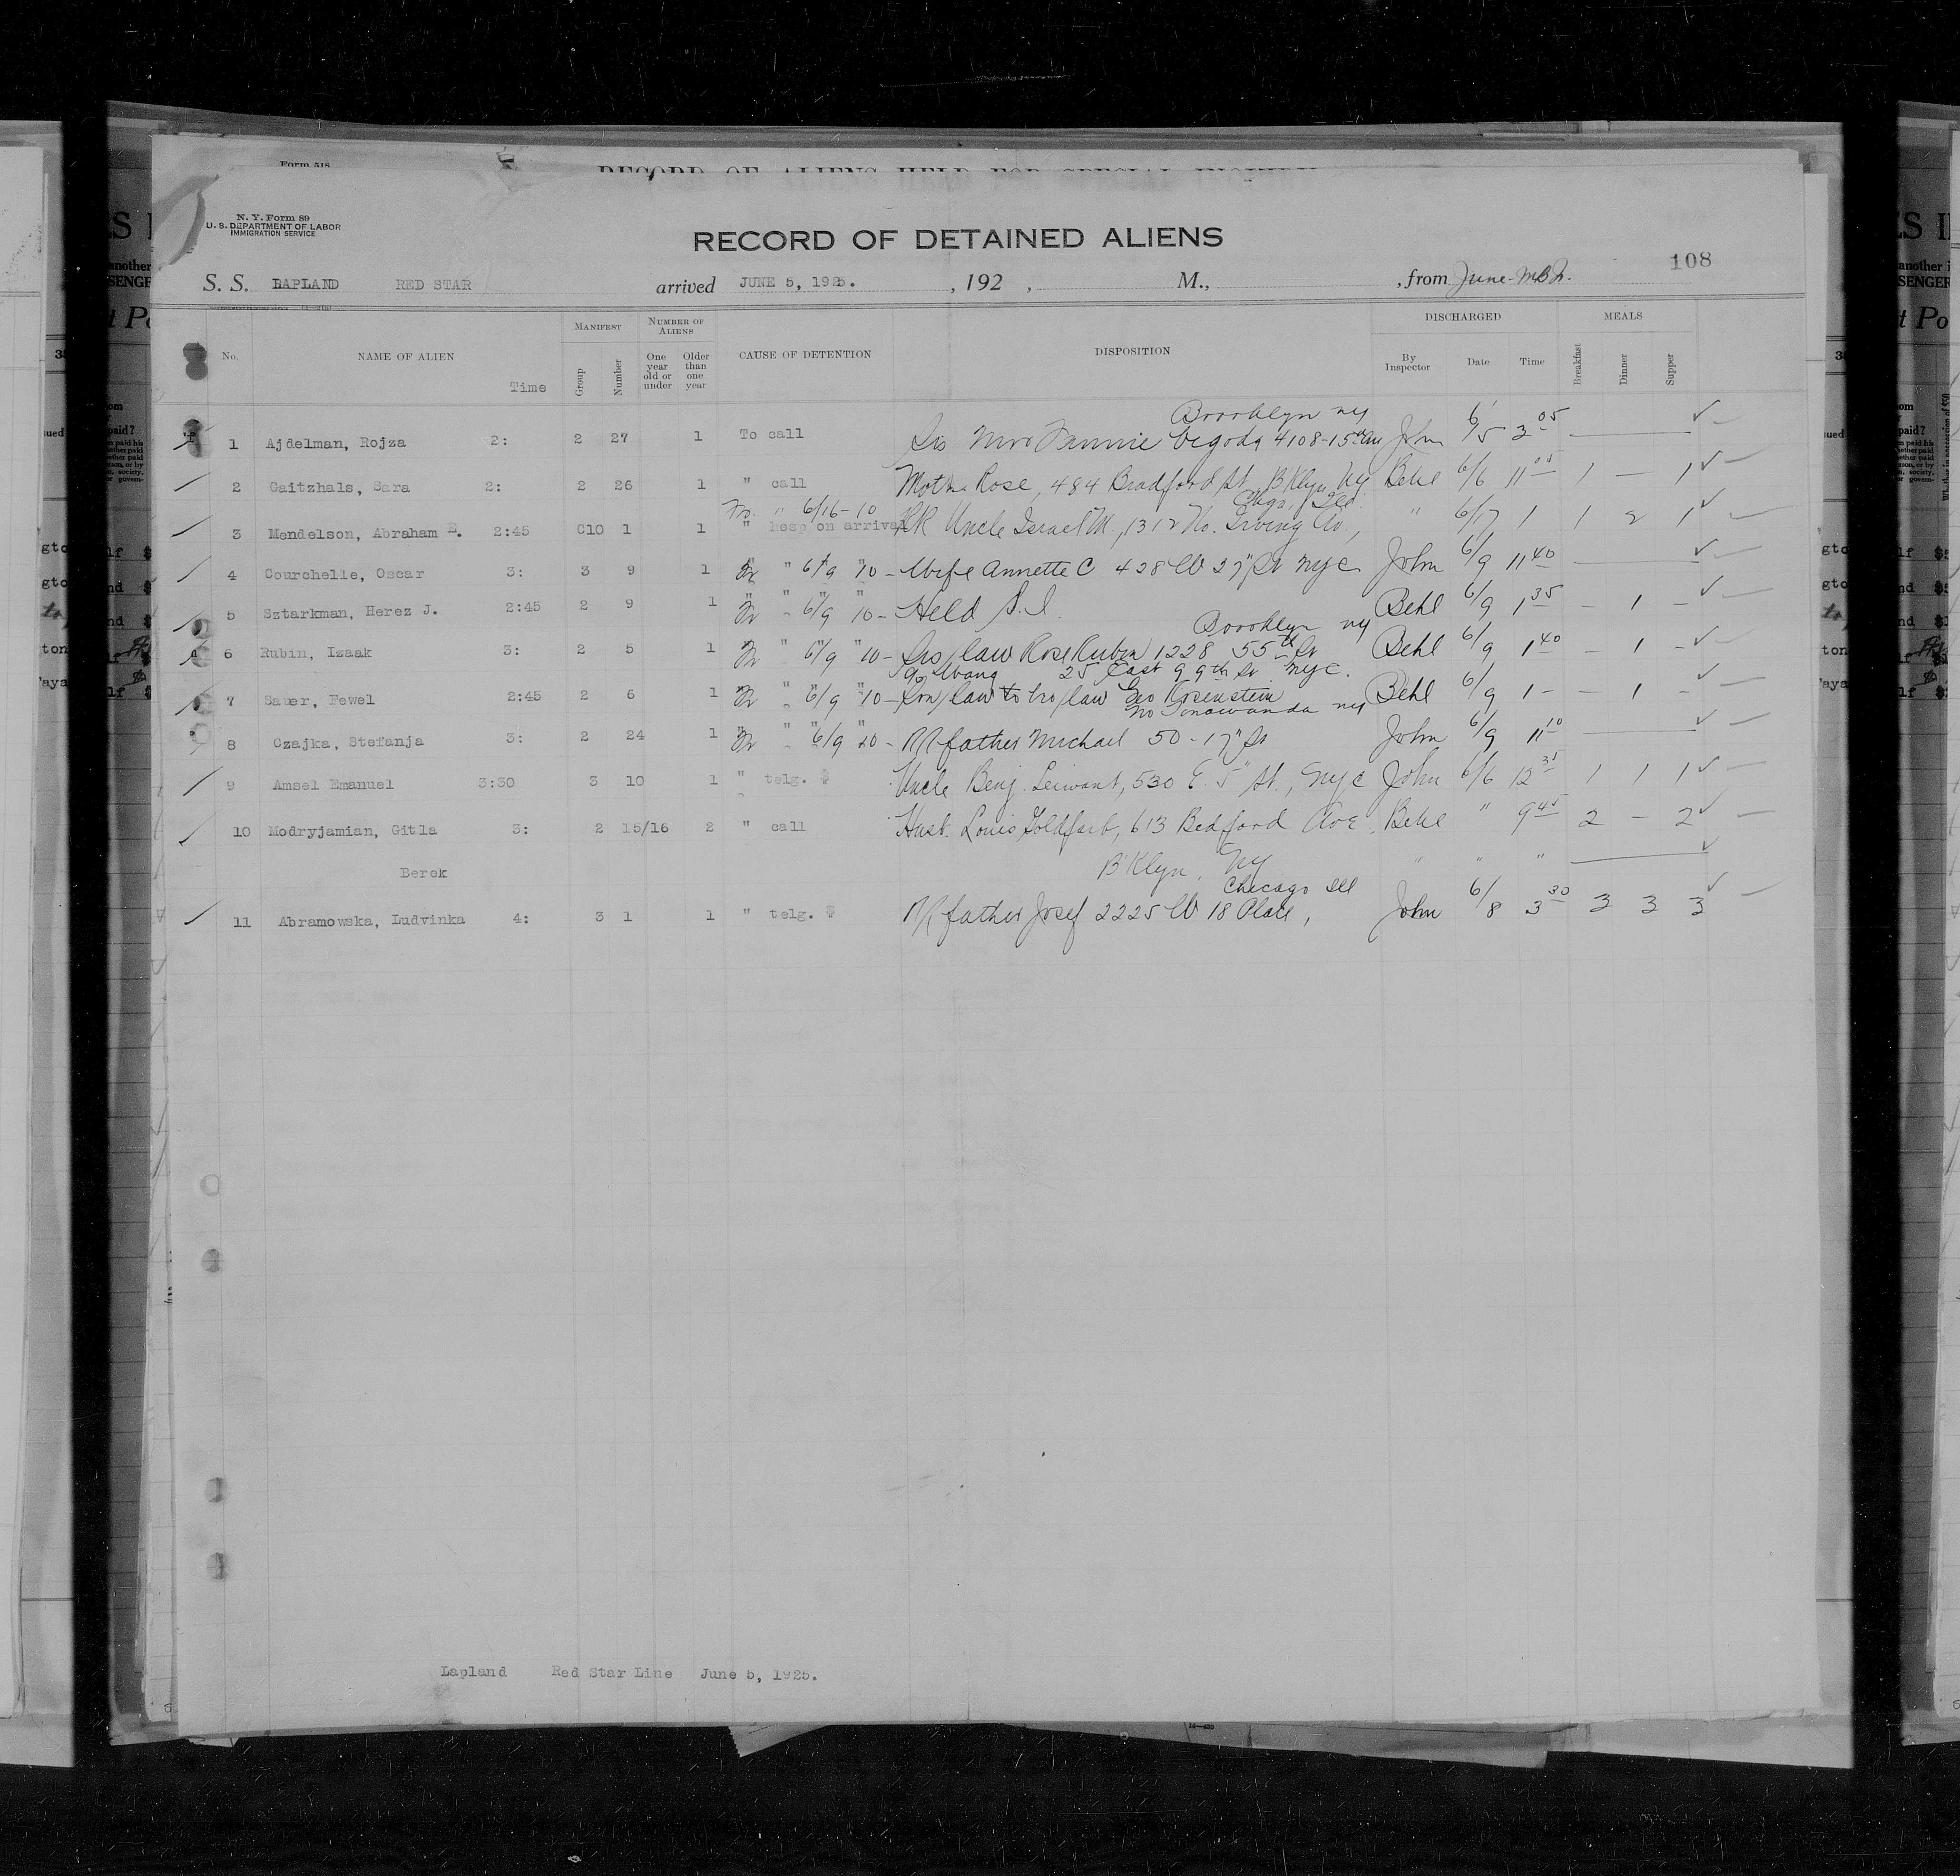 Form 518
RECORD OF ALIENS HELD FOR SPECIAL INQUIRY
N. Y. Form 89
U. S. DEPARTMENT OF LABOR
IMMIGRATION SERVICE
RECORD OF DETAINED ALIENS
108
S. S. LAPLAND RED STAR arrived JUNE 5, 1925. , 192 , M., , from June-
No. NAME OF ALIEN Time MANIFEST Group Number NUMBER OF ALIENS One year old or under Older than one year CAUSE OF DETENTION DISPOSITION DISCHARGED By Inspector Date Time MEALS Breakfast Dinner Supper
Brooklyn ny
1 Ajdelman, Rojza 2: 2 27 1 To call Sis Mrs Fannie Cigoda 4108-15th Av John 6/5 3 05
2 Gaitzhals, Sara 2: 2 26 1 " call Moth. Rose, 484 Bradford St B'Klyn Ny Behl 6/6 11 05 1 - 1 ✓
Fr. " 6/16-10 Chgo, Ill.
3 Mendelson, Abraham E. 2:45 C10 1 1 " hosp on arrival RR Uncle Israel M., 1312 No. Irving Av., " 6/17 1 1 2 1 ✓
4 Courchelie, Oscar 3: 3 9 1 Fr " 6/9 10- Wife Annette C 428 W 27" St nyc John 6/9 11 40 ✓
5 Sztarkman, Herez J. 2:45 2 9 1 Fr " 6/9 10- Held S.I. Behl 6/9 1 35 - 1 - ✓
Brooklyn ny
6 Rubin, Izaak 3: 2 5 1 Fr " 6/9 10- Sis/law Rose Rubin 1228 55th St Behl 6/9 1 40 - 1 - ✓
25 East 99th St nyc.
7 Sauer, Fewel 2:45 2 6 1 Fr " 6/9 10- Son/law to bro/law Geo Rosenstein Behl 6/9 1 - - 1 - ✓
No Tonawanda ny
8 Czajka, Stefanja 3: 2 24 1 Fr " 6/9 10- RR father Michael 50-17" St John 6/9 11 10 ✓
9 Amsel Emanuel 3:30 3 10 1 " telg. $ Uncle Benj. Leiwant, 530 E. 5" St., Nyc John 6/6 12 35 1 1 1 ✓
10 Modryjamian, Gitla 3: 2 15/16 2 " call Husb. Louis Goldfarb, 613 Bedford Ave. Behl " 9 45 2 - 2 ✓
Berek B'Klyn. Ny " " " ✓
Chicago Ill
11 Abramowska, Ludvinka 4: 3 1 1 " telg. $ RR father Josef 2225 W 18 Place, John 6/8 3 30 3 3 3 ✓
Lapland Red Star Line June 5, 1925.